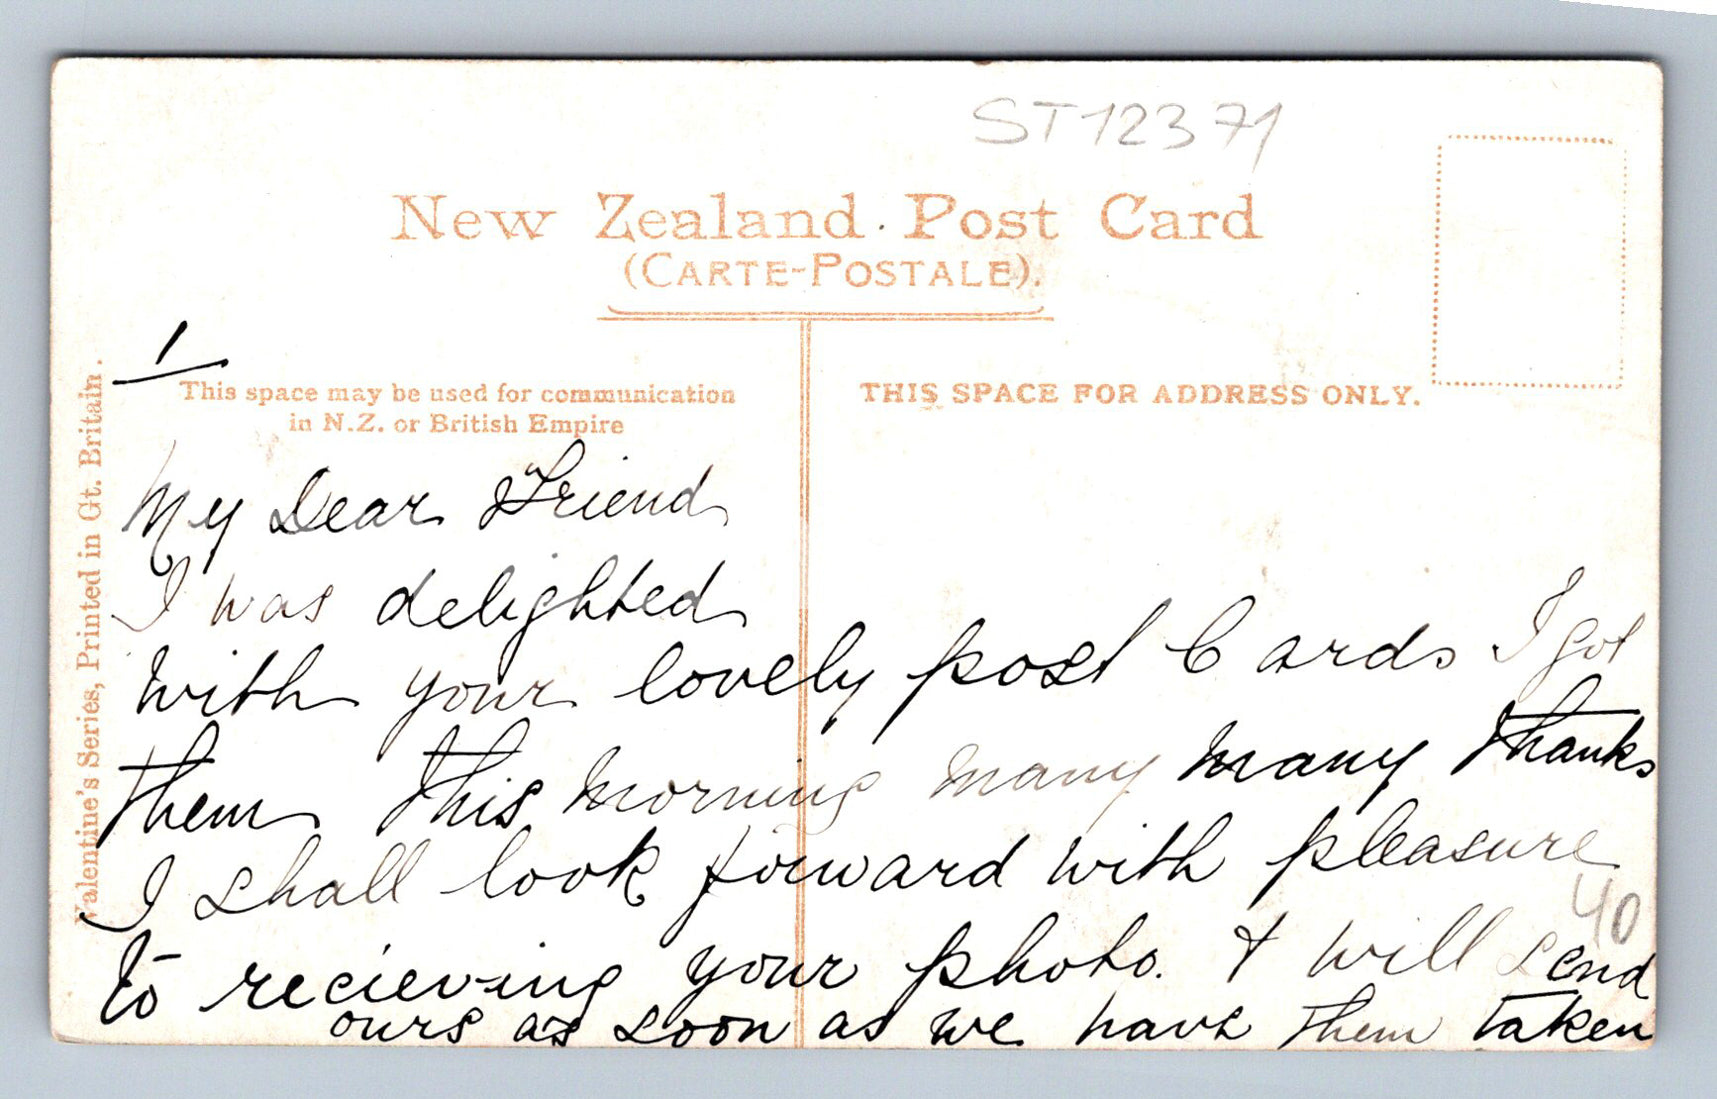 ST12371
New Zealand Post Card
(CARTE-POSTALE).
1
This space may be used for communication
in N.Z. or British Empire
THIS SPACE FOR ADDRESS ONLY.
Valentine's Series, Printed in Gt. Britain.
My Dear Friend
I was delighted
with your lovely post Cards I got
them this morning many many thanks
I shall look forward with pleasure
40
to recieving your photo. & will send
ours as soon as we have them taken